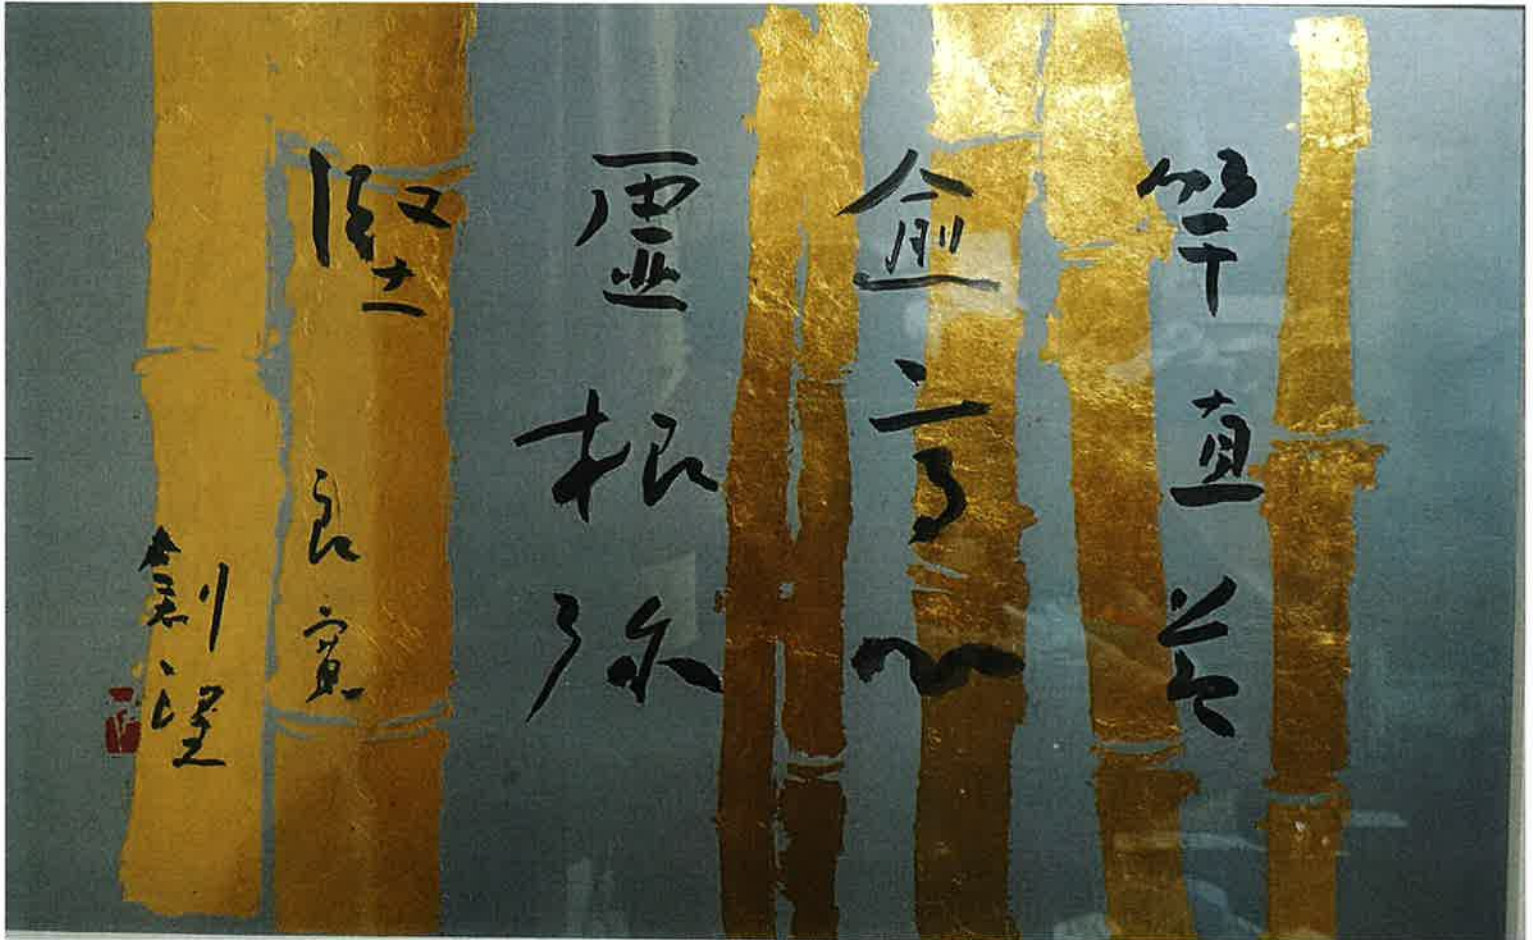 竿直節
愈高心
虚根弥
堅 良寛
創望